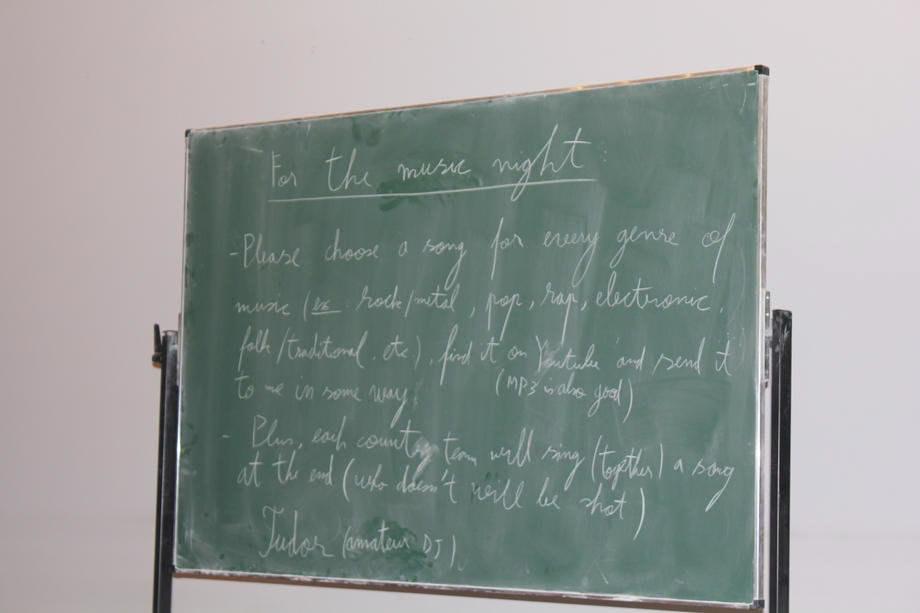 For the music night
- Please choose a song for every genre of
music (ex. rock/metal, pop, rap, electronic,
folk/traditional, etc), find it on Youtube and send it
to me in some way. (MP3 is also good)
- Plus, each country team will sing (together) a song
at the end (who doesn't will be shot)
Tudor (amateur DJ)